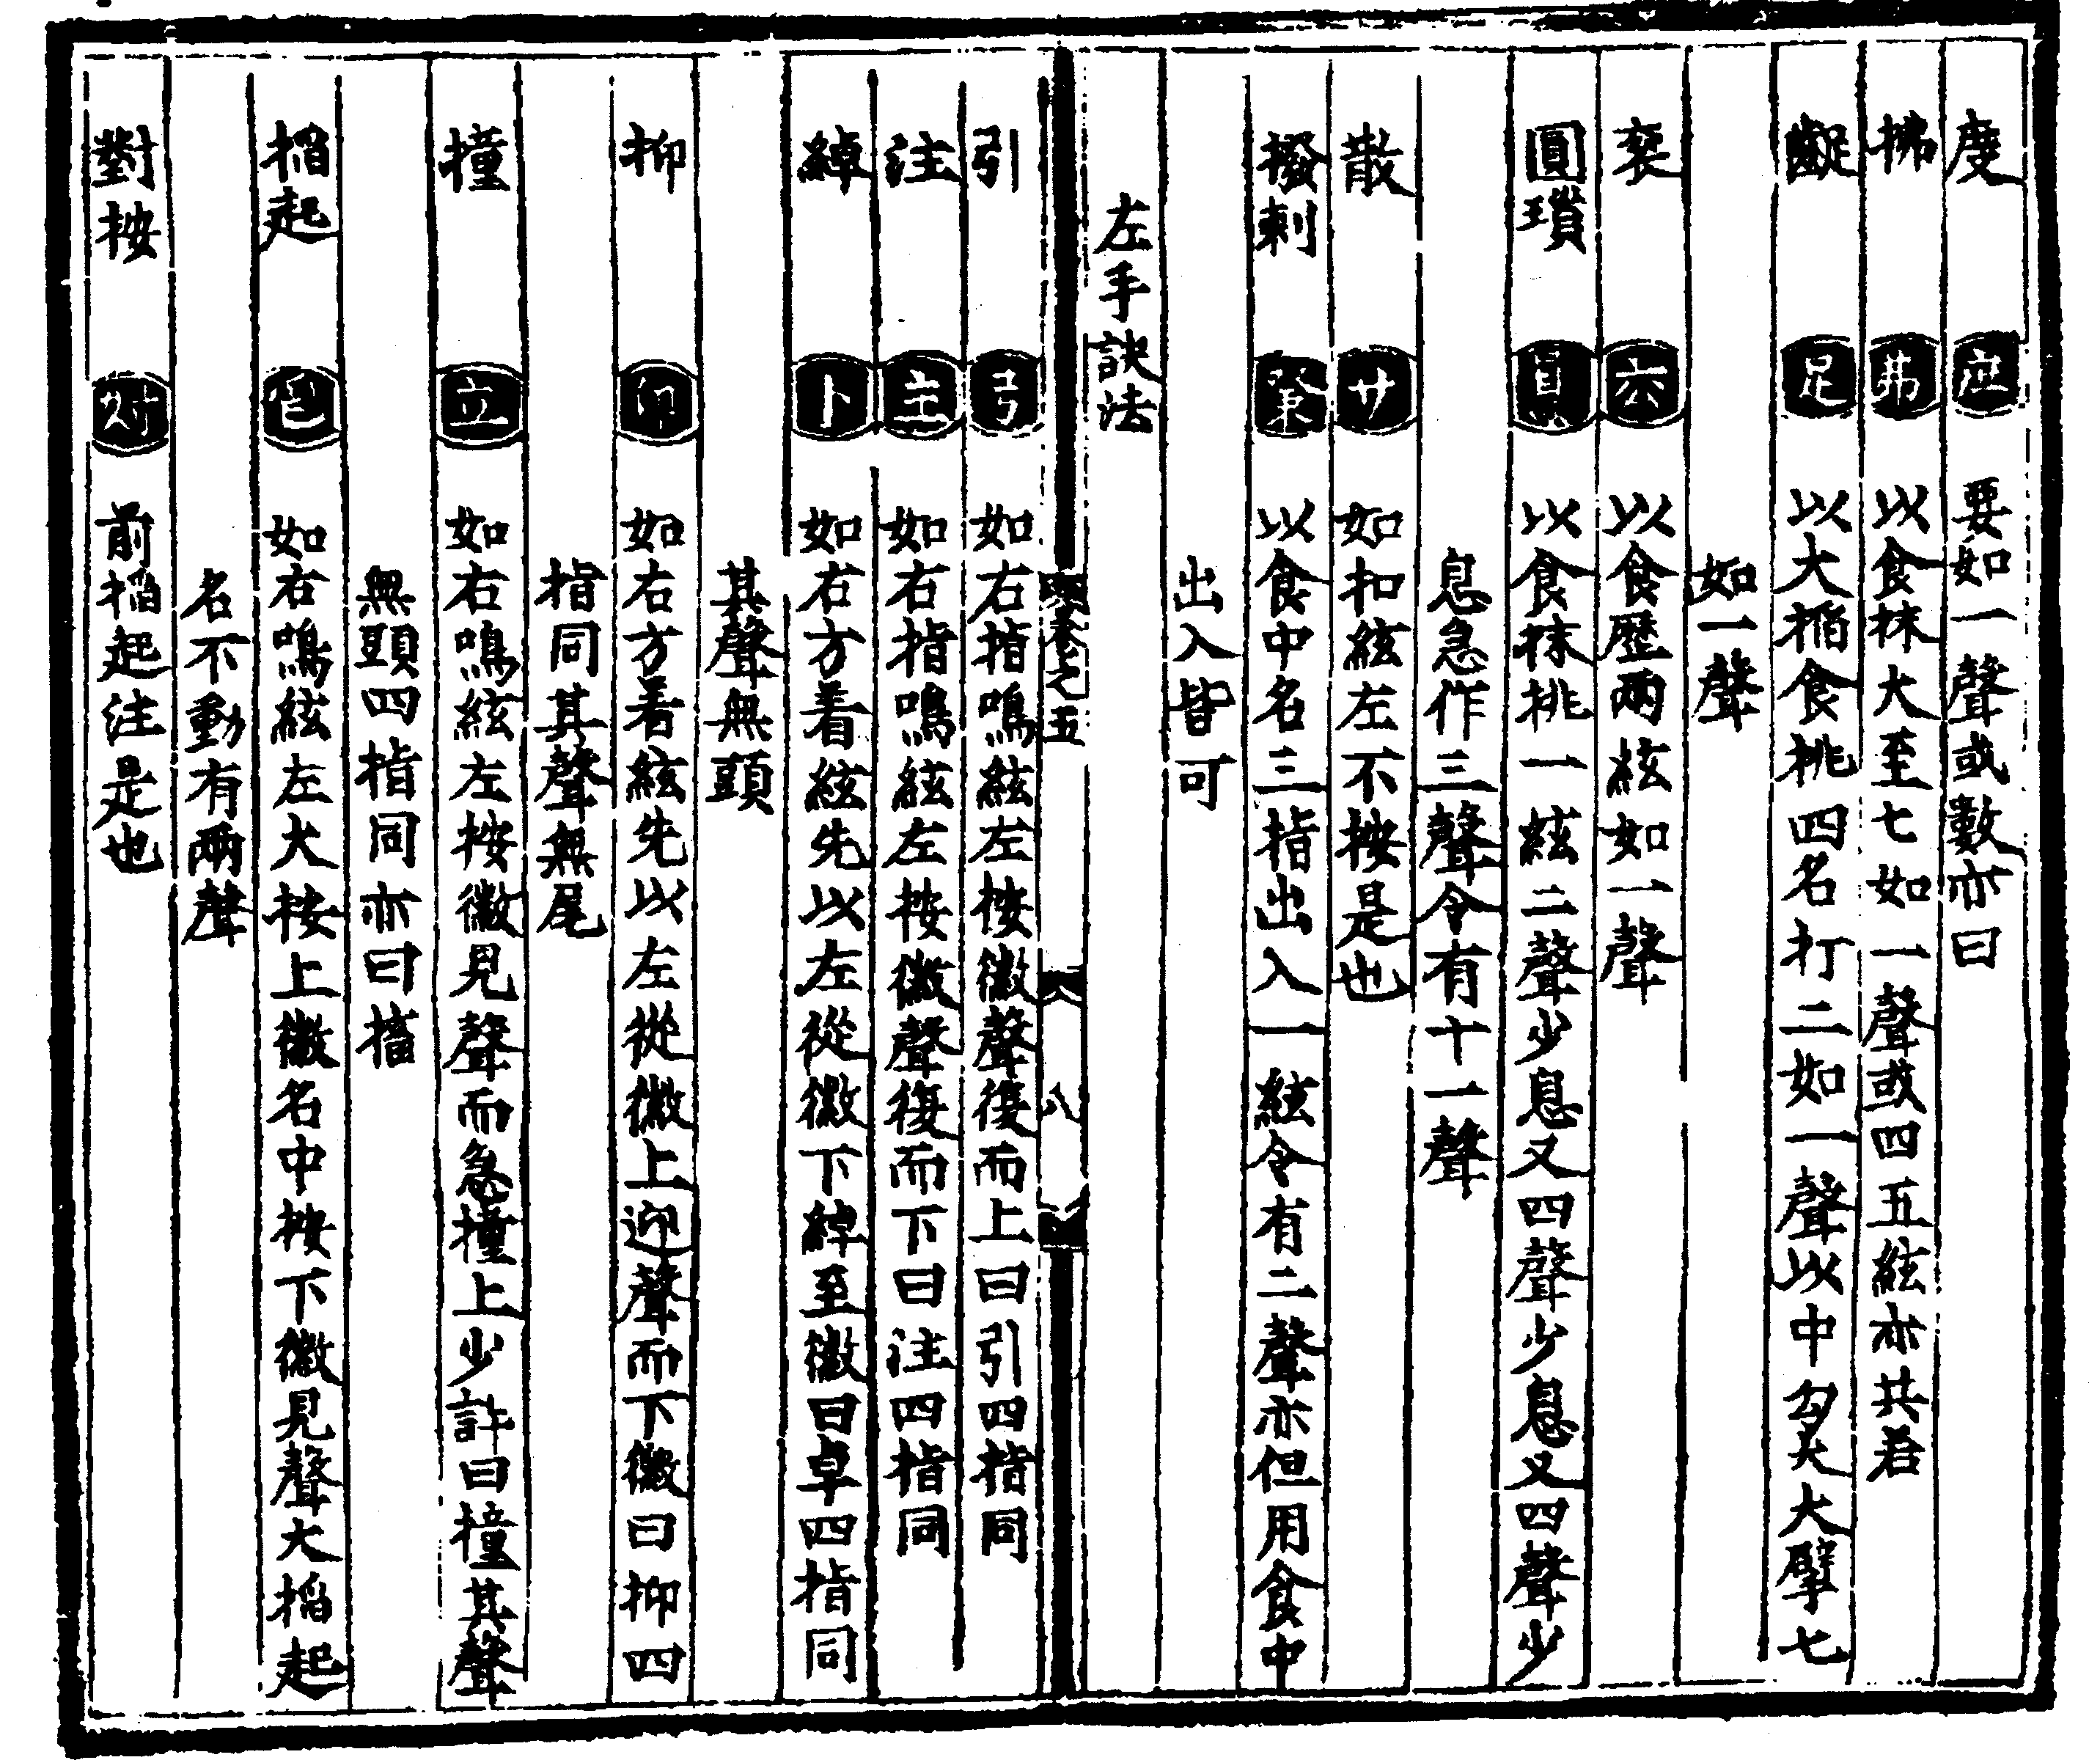 度 应 要如一聲或數亦曰
拂 弗 以食抹大至七如一聲或四五絃亦共君
齪 足 以大搯食挑四名打二如一聲以中勾大大擘七
如一聲
以食歷兩絃如一聲
圓瑣 以食抹挑一絃二聲少息又四聲少息又四聲少
息急作三聲令有十一聲
散 サ 如扣絃左不按是也
撥剌 以食中名三指出入一絃令有二聲亦但用食中
出入皆可
左手訣法
卷之五 八
引 弓 如右指鳴絃左按徽聲復而上曰引四指同
注 主 如右指鳴絃左按徽聲復而下曰注四指同
綽 卜 如右方着絃先以左從徽下綽至徽曰卓四指同
其聲無頭
抑 卬 如右方着絃先以左從徽上迎聲而下徽曰抑四
指同其聲無尾
撞 立 如右鳴絃左按徽見聲而急撞上少許曰撞其聲
無頭四指同亦曰擂
搯起 如右鳴絃左大按上徽名中按下徽見聲大搯起
名不動有兩聲
對按 前搯起注是也